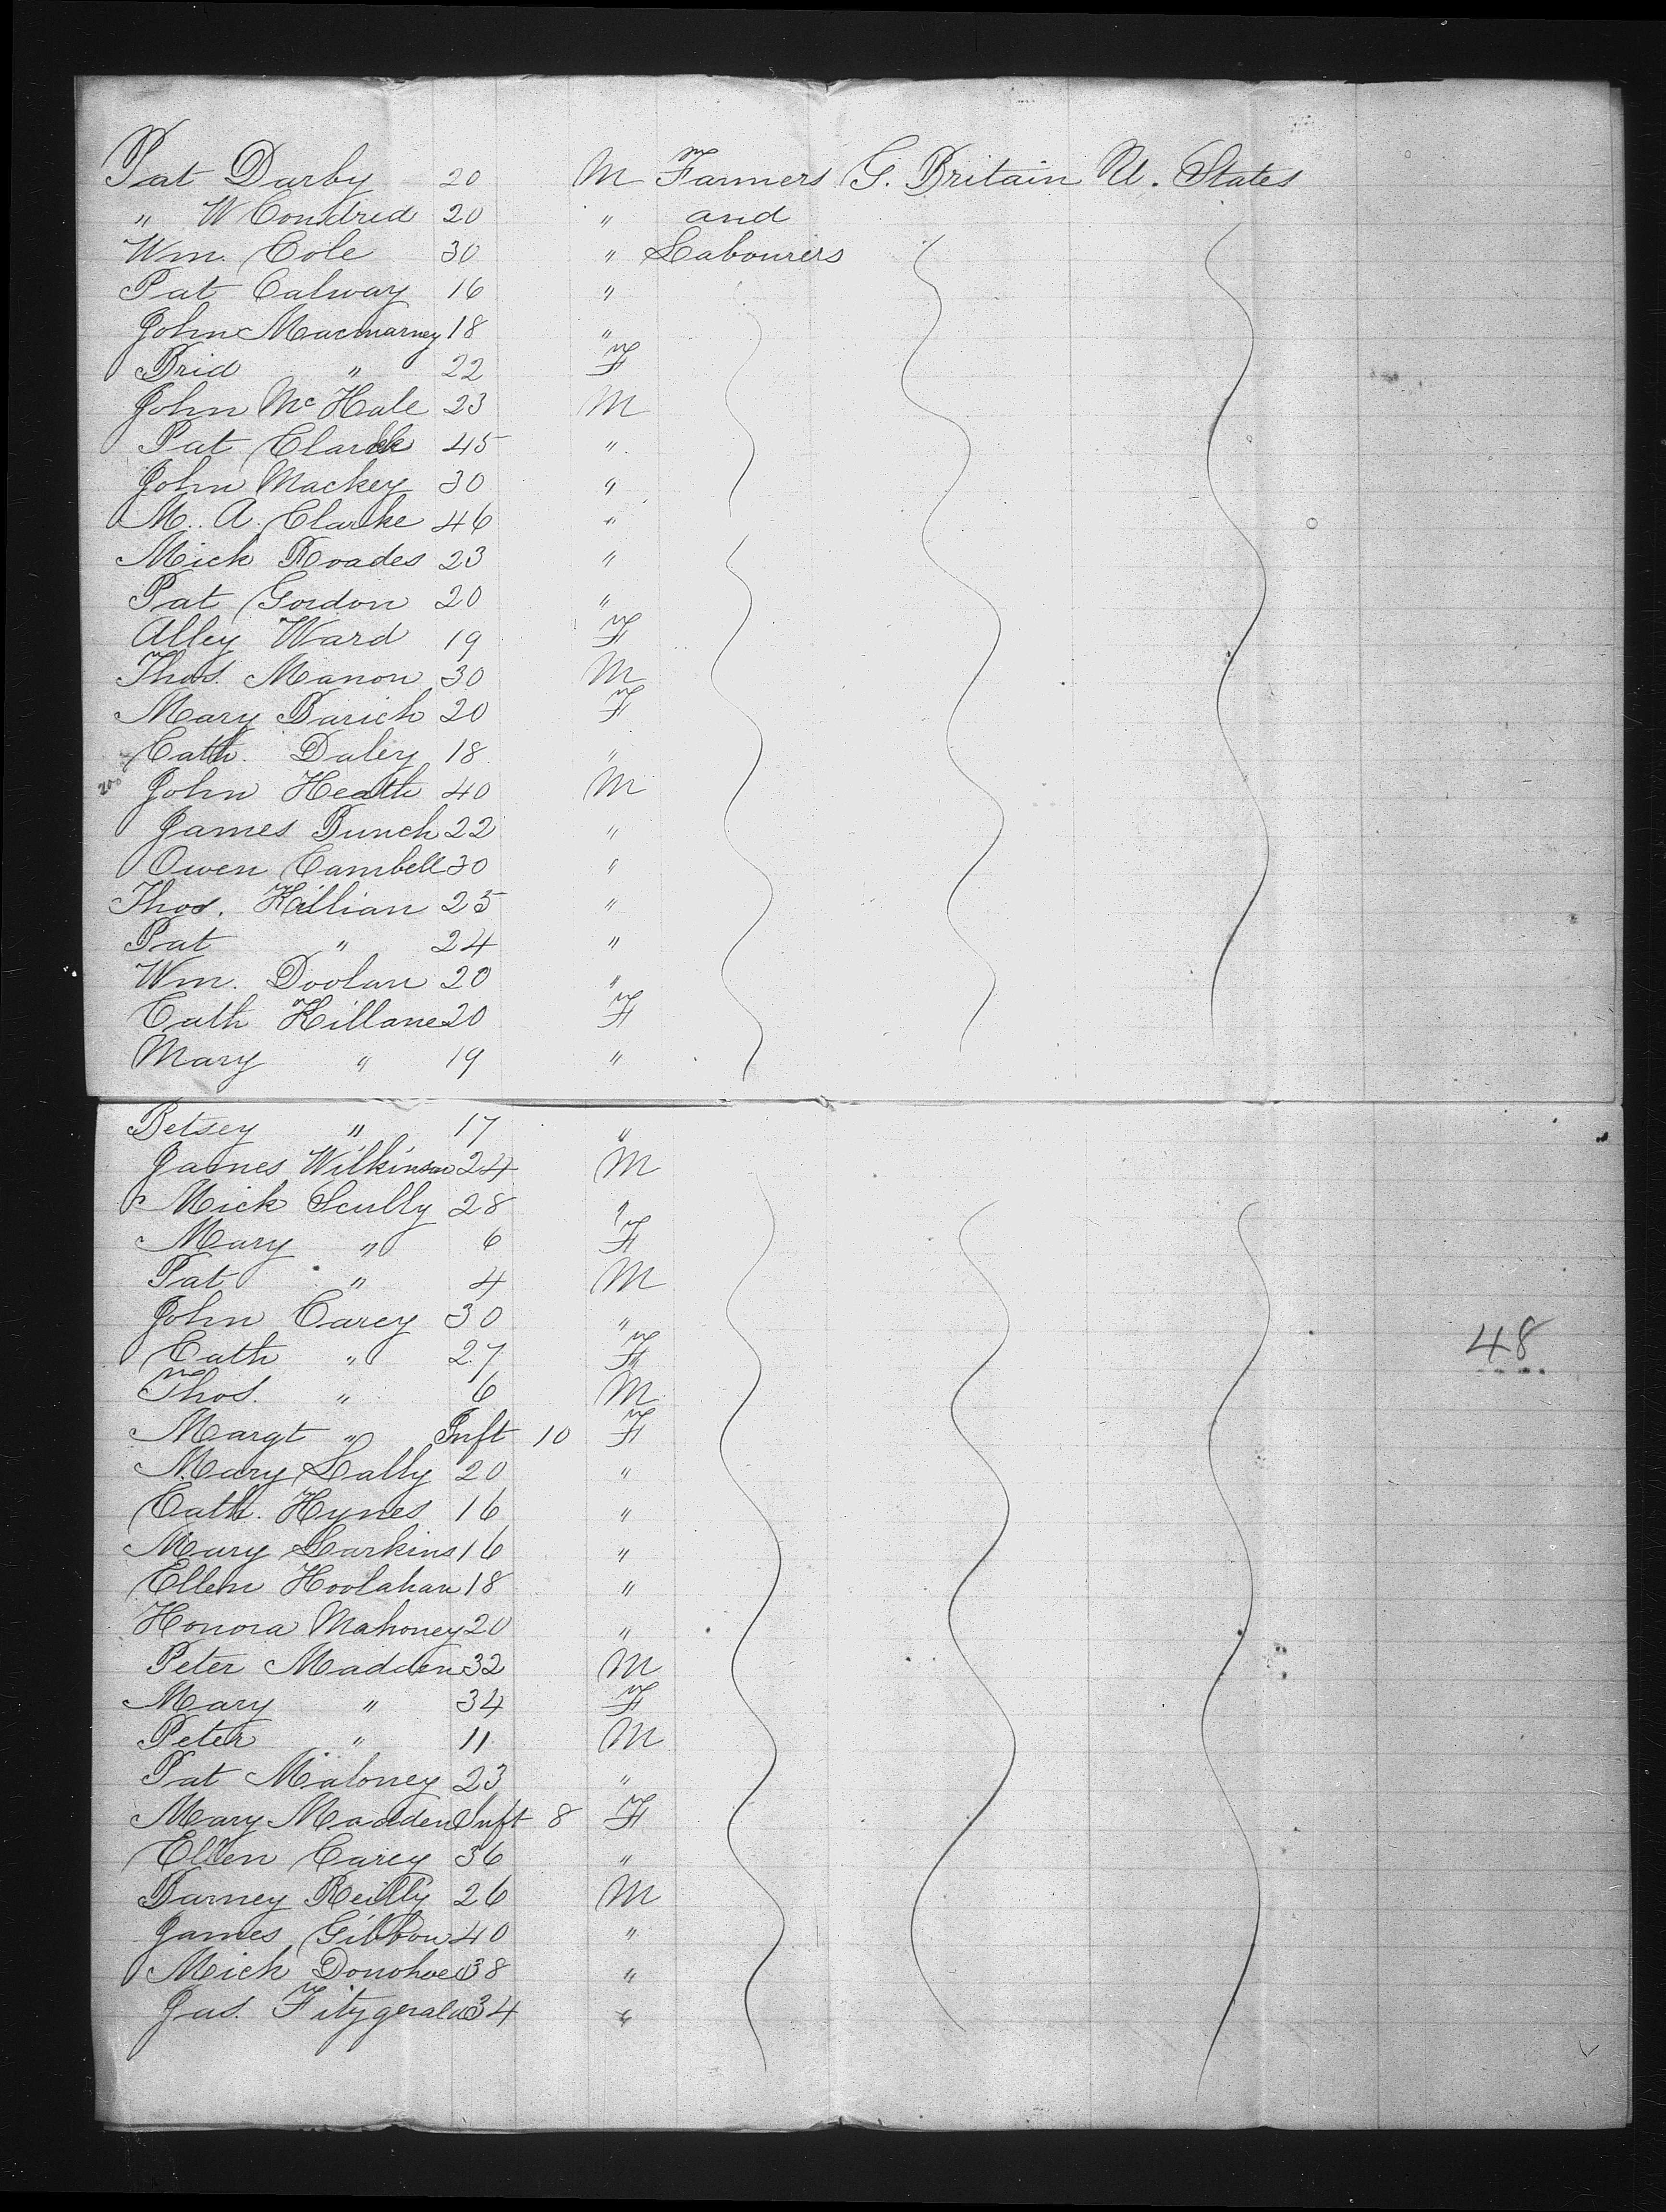 Pat Darby 20 M Farmers G. Britain U. States
" W Condred 20 " and
Wm. Cole 30 " Labourers
Pat Calway 16 "
John Macmarney 18 "
Brid " 22 F
John McHale 23 M
Pat Clark 45 "
John Mackey 30 "
M. A. Clarke 46 "
Mick Roades 23 "
Pat Gordon 20 "
Alley Ward 19 F
Thos. Manon 30 M
Mary Barich 20 F
Cath. Daley 18 "
John Heath 40 M
James Bunch 22 "
Owen Cambell 30 "
Thos. Killian 25 "
Pat " 24 "
Wm. Doolan 20 "
Cath Killane 20 F
Mary " 19 "
Betsey " 17 "
James Wilkinson 24 M
Mick Scully 28 "
Mary " 6 F
Pat " 4 M
John Carey 30 "
Cath " 27 F
48
Thos. " 6 M
Margt " Inft 10 F
Mary Lally 20 "
Cath. Hynes 16 "
Mary Larkins 16 "
Ellen Hoolahan 18 "
Honora Mahoney 20 "
Peter Madden 32 M
Mary " 34 F
Peter " 11 M
Pat Maloney 23 "
Mary Madden Inft 8 F
Ellen Carey 36 "
Barney Reilly 26 M
James Gibbon 40 "
Mick Donohoe 38 "
Jas. Fitzgerald 34 "